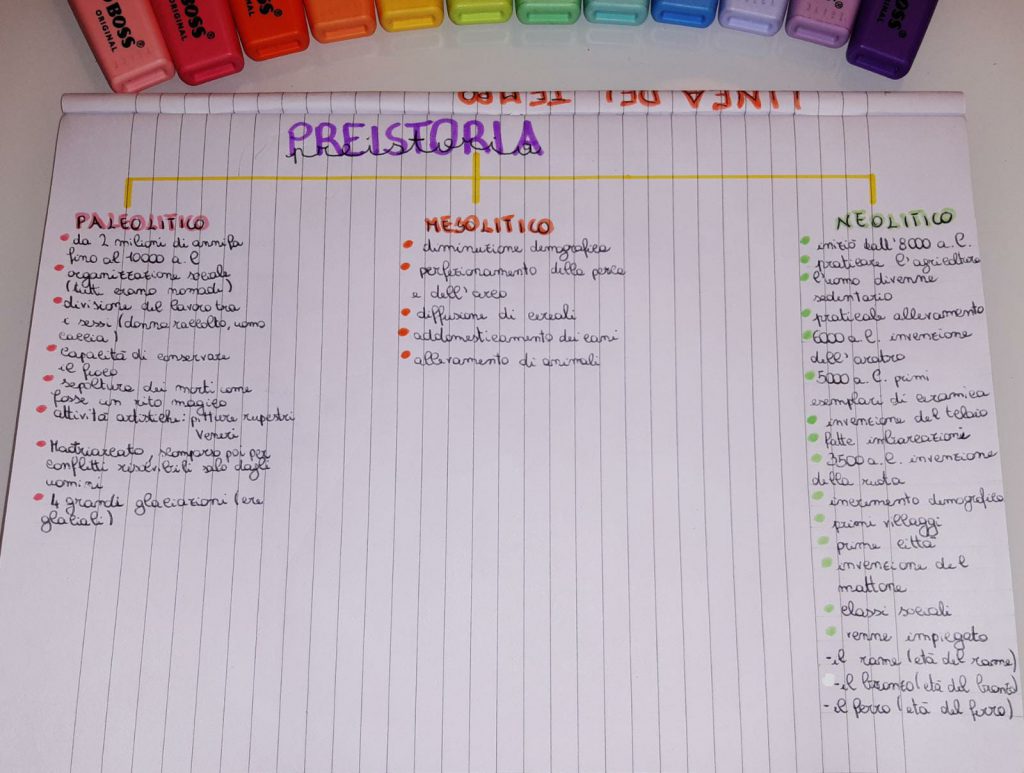 BOSS®
ORIGINAL
BOSS®
ORIGINAL
BOSS
ORIGINAL
LINEA DEL TEMPO
PREISTORIA
preistoria
PALEOLITICO
da 2 milioni di anni fa
fino al 10000 a.C
organizzazione sociale
(tutti erano nomadi)
divisione del lavoro tra
i sessi (donna raccolto, uomo
caccia)
capacità di conservare
il fuoco
sepoltura dei morti come
fosse un rito magico
attività artistiche: pitture rupestri
Veneri
Matriarcato, scomparso poi per
conflitti risolvibili solo dagli
uomini
4 grandi glaciazioni (ere
glaciali)
MESOLITICO
diminuzione demografica
perfezionamento della pesca
e dell'arco
diffusione di cereali
addomesticamento dei cani
allevamento di animali
NEOLITICO
iniziò dall'8000 a.C.
praticare l'agricoltura
l'uomo divenne
sedentario
praticato allevamento
6000 a.C. invenzione
dell'aratro
5000 a.C. primi
esemplari di ceramica
invenzione del telaio
fatte imbarcazioni
3500 a.C. invenzione
della ruota
incremento demografico
primi villaggi
prime città
invenzione del
mattone
classi sociali
venne impiegato
-il rame (età del rame)
-il bronzo (età del bronzo)
-il ferro (età del ferro)